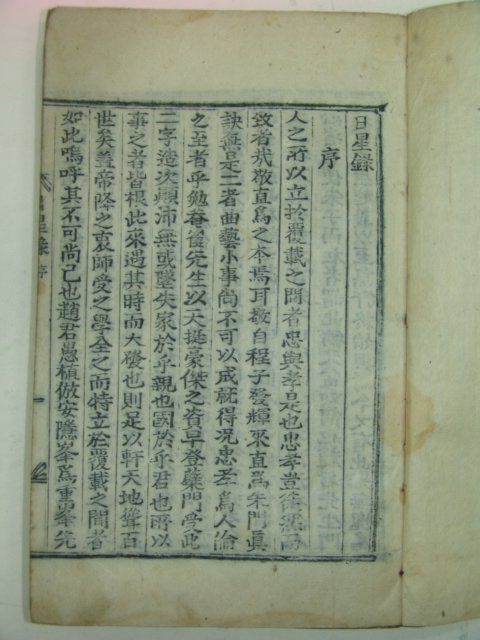 日星錄
序
人之所以立於覆載之間者忠與孝是也忠孝豈徒然而
致者哉敬直爲之本焉耳敬自程子發輝來直爲朱門眞
訣無是二者曲藝小事尙不可以成就得況忠孝爲人倫
之至者乎勉菴先生以天挺豪傑之資早登蘗門受此
二字造次顚沛無或墜失家於乎親也國於乎君也所以
事之者皆根此來遇其時而大發也則足以軒天地聳百
世矣盖帝降之衷師受之學全之而特立於覆載之間者
如此嗚呼其不可尙已也趙君愚植倣安隱峯爲重峯先
日星錄 序